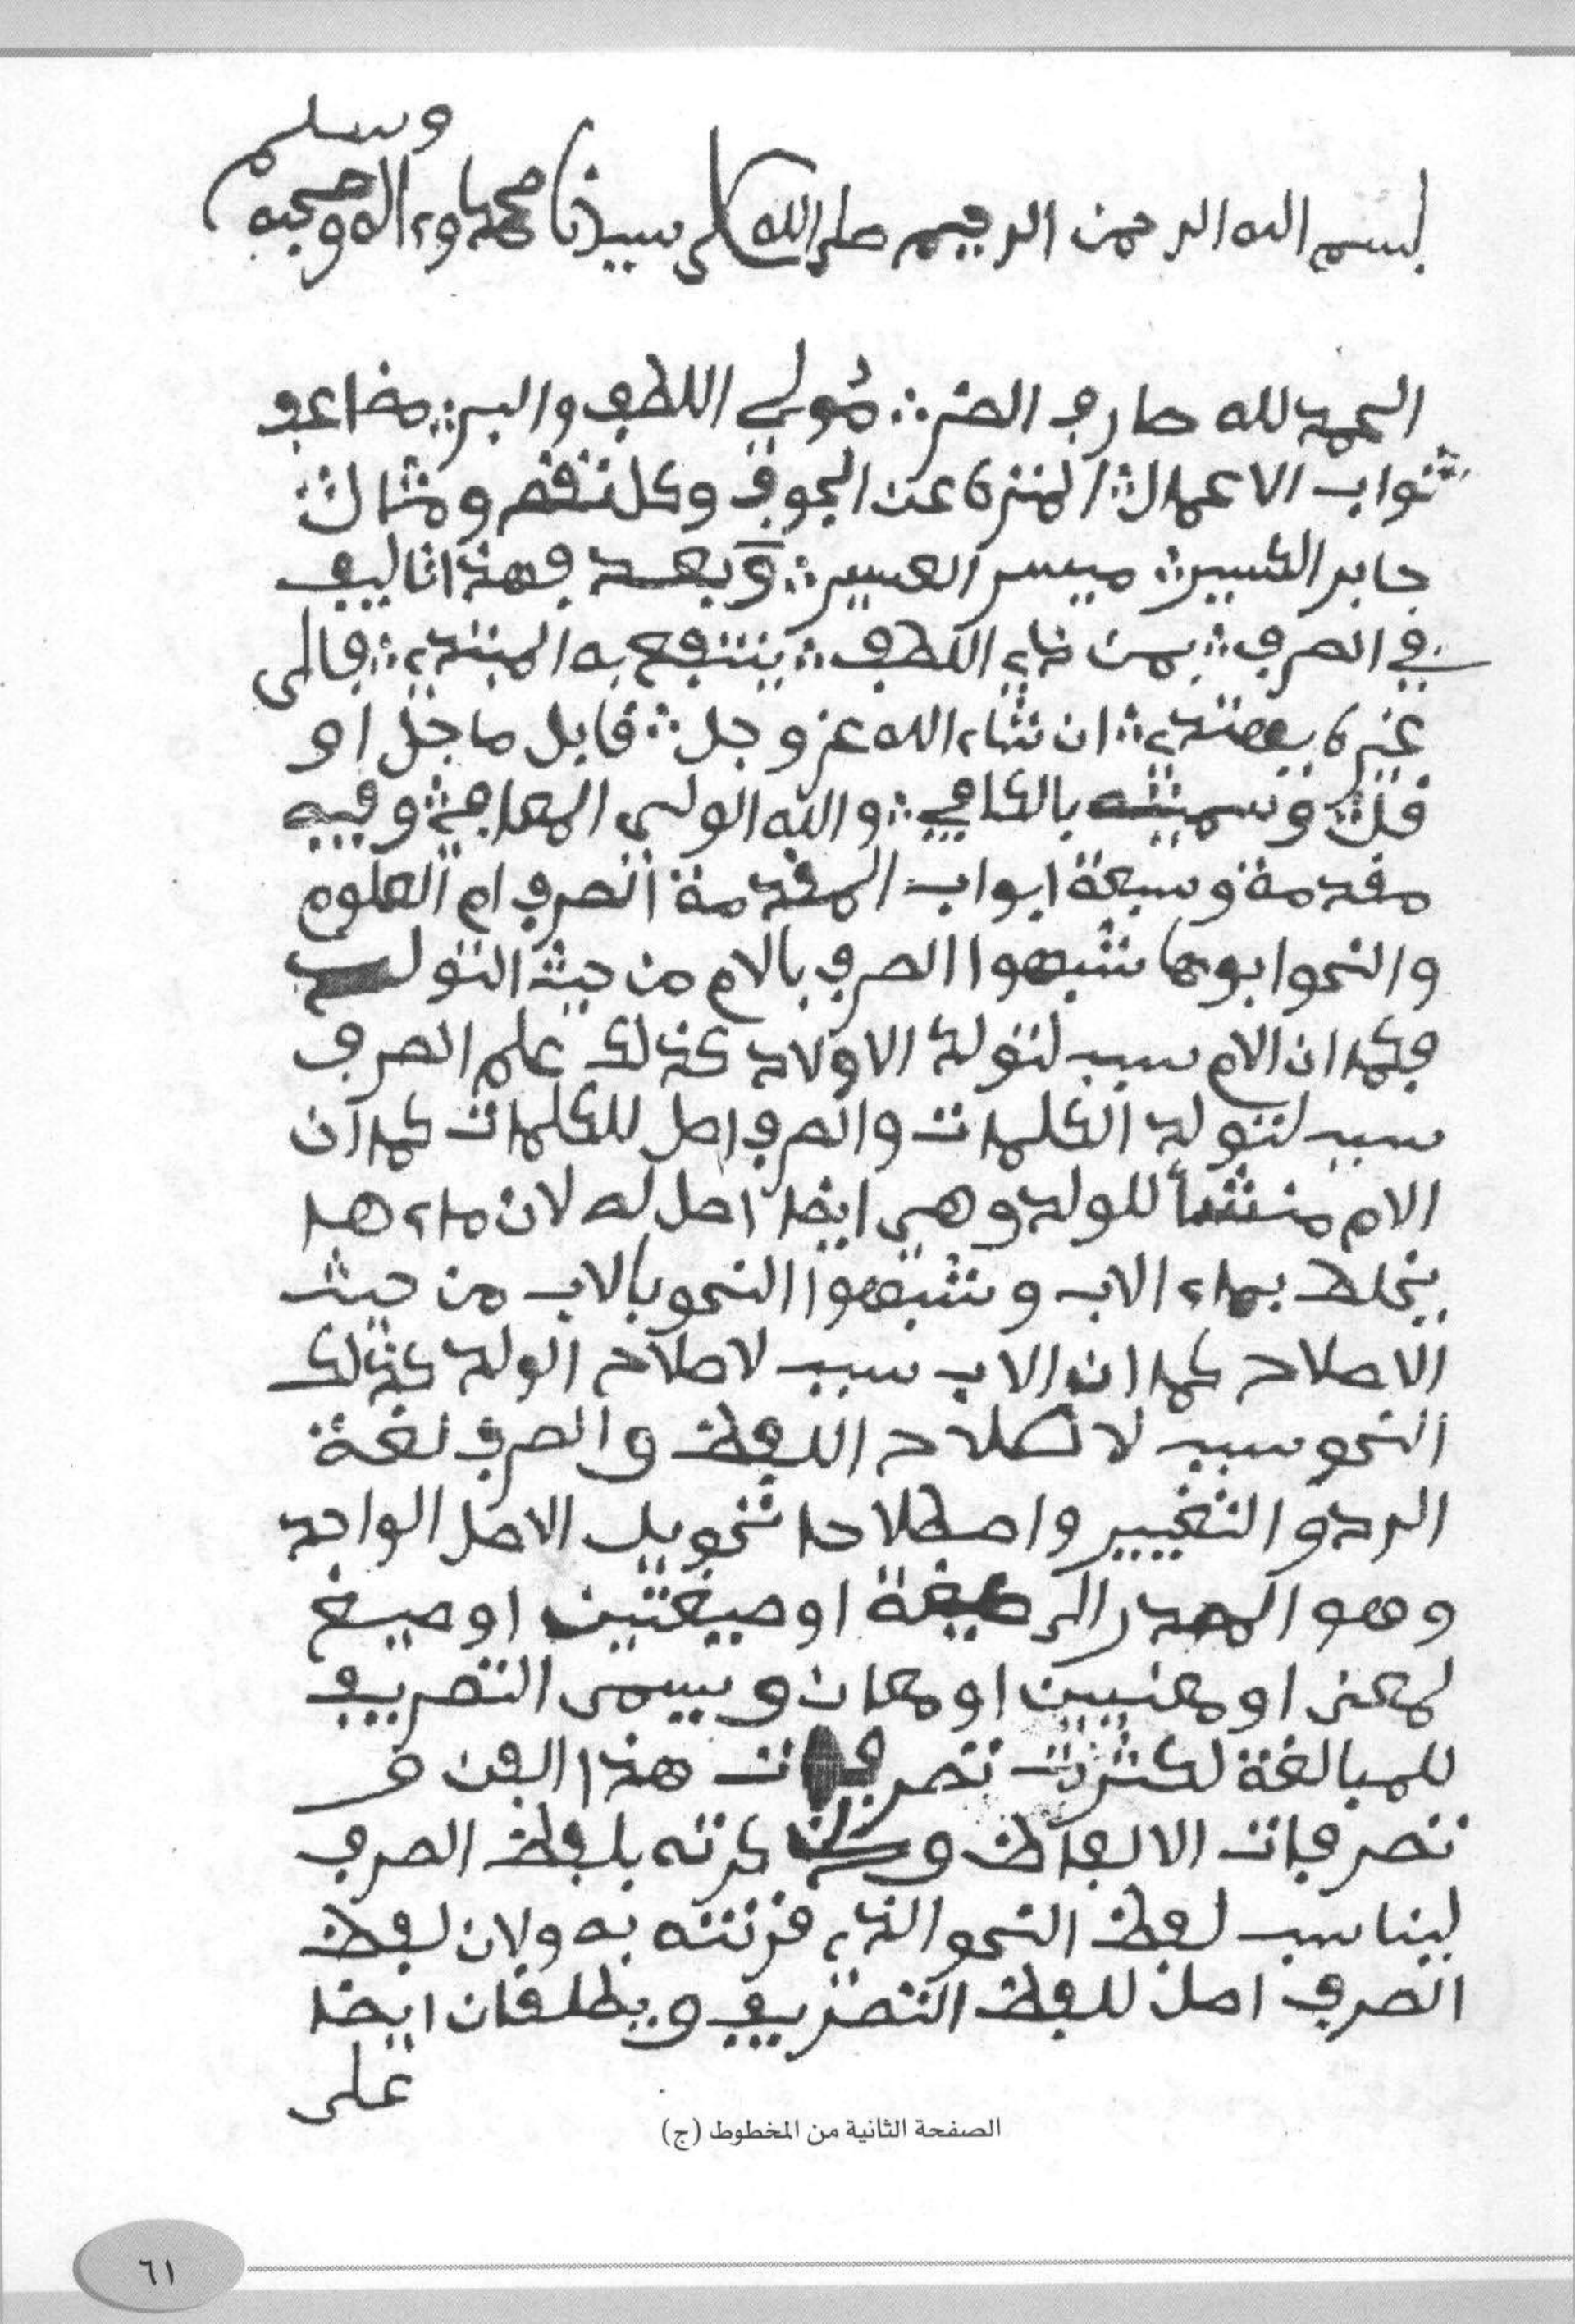 وسلم
بسم الله الرحمن الرحيم صلى الله على سيدنا محمد وءاله وصحبه
الحمد لله صارف الضر ؞ مُولي اللطف والبر ؞ مضاعف
ثواب الاعمال ؞ المنزه عن الجوف وكل نقص ومثال ؞
جابر الكسير ؞ ميسر العسير ؞ وبعد فهذا تاليف
في الصرف ؞ بمن ذي اللطف ؞ ينتفع به المبتدي ؞ فالى
غيره يهتدي ؞ ان شاء الله عز وجل ؞ قابل ما جل او
قل ؞ وسميته بالكافي ؞ والله الولي المعافي ؞ وفيه
مقدمة وسبعة ابواب المقدمة الصرف ام العلوم
والنحو ابوها شبهوا الصرف بالام من حيث التولد
فكما ان الام سبب لتولد الاولاد كذلك علم الصرف
سبب لتولد الكلمات والصرف اصل للكلمات كما ان
الام منشأ للولد وهي ايضا اصل له لان ماءها
يخلط بماء الاب وشبهوا النحو بالاب من حيث
الاصلاح كما ان الاب سبب لاصلاح الولد كذلك
النحو سبب لاصلاح اللفظ والصرف لغة
الرد والتغيير واصطلاحا تحويل الاصل الواحد
وهو المصدر الى صيغة او صيغتين او صيغ
لمعنى او معنيين او معان ويسمى التصريف
للمبالغة لكثرت تصرفات هذا الفن و
تصرفات الالفاظ وذكرته بلفظ الصرف
ليناسب لفظ النحو الذي قرنته به ولان لفظ
الصرف اصل للفظ التصريف ويطلقان ايضا
على
الصفحة الثانية من المخطوط (ج)
٦١